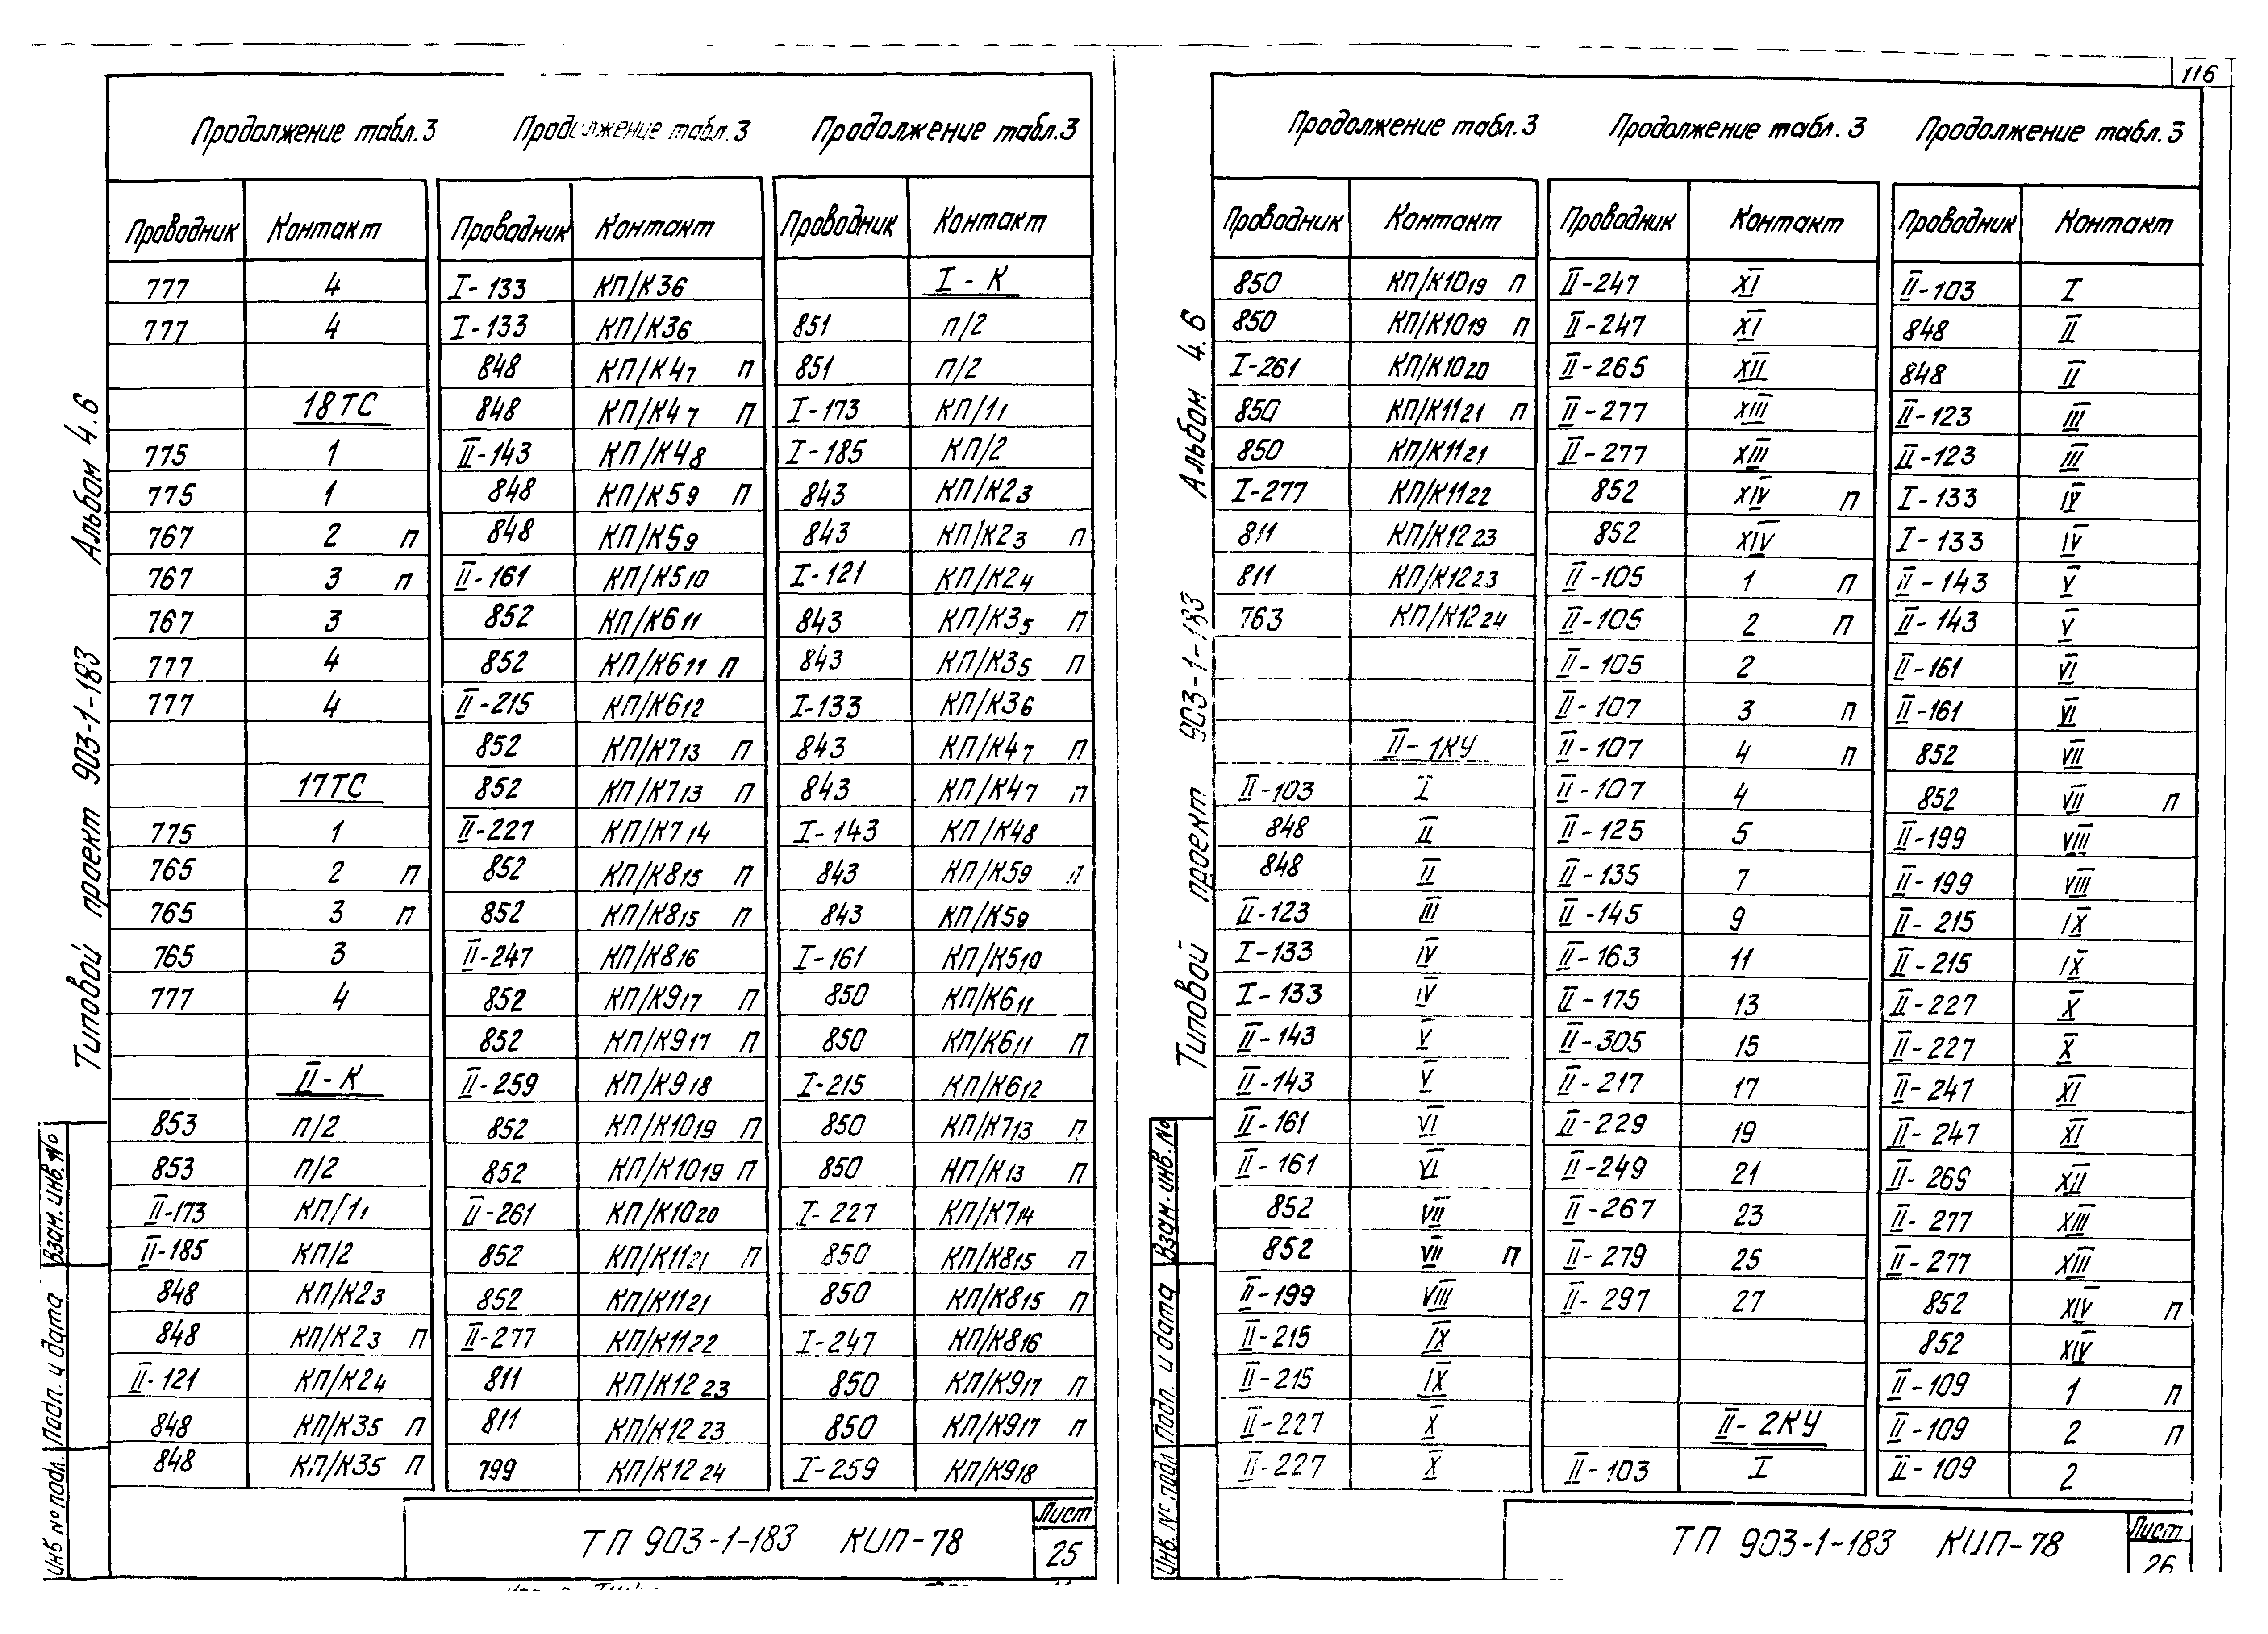 116
Продолжение табл.3 Продолжение табл.3 Продолжение табл.3
Проводник Контакт Проводник Контакт Проводник Контакт
777 4 I-133 КП/К36 I-К
777 4 I-133 КП/К36 851 п/2
848 КП/К47 п 851 п/2
18ТС 848 КП/К47 п I-173 КП/11
775 1 II-143 КП/К48 I-185 КП/2
775 1 848 КП/К59 п 843 КП/К23
767 2 п 848 КП/К59 843 КП/К23 п
767 3 п II-161 КП/К510 I-121 КП/К24
767 3 852 КП/К611 843 КП/К35 п
777 4 852 КП/К611 п 843 КП/К35 п
777 4 II-215 КП/К612 I-133 КП/К36
852 КП/К713 п 843 КП/К47 п
17ТС 852 КП/К713 п 843 КП/К47 п
775 1 II-227 КП/К714 I-143 КП/К48
765 2 п 852 КП/К815 п 843 КП/К59 п
765 3 п 852 КП/К815 п 843 КП/К59
765 3 II-247 КП/К816 I-161 КП/К510
777 4 852 КП/К917 п 850 КП/К611
852 КП/К917 п 850 КП/К611 п
II-К II-259 КП/К918 I-215 КП/К612
853 п/2 852 КП/К1019 п 850 КП/К713 п
853 п/2 852 КП/К1019 п 850 КП/К13 п
II-173 КП/11 II-261 КП/К1020 I-227 КП/К714
II-185 КП/2 852 КП/К1121 п 850 КП/К815 п
848 КП/К23 852 КП/К1121 850 КП/К815 п
848 КП/К23 п II-277 КП/К1122 I-247 КП/К816
II-121 КП/К24 811 КП/К1223 850 КП/К917 п
848 КП/К35 п 811 КП/К1223 850 КП/К917 п
848 КП/К35 п 799 КП/К1224 I-259 КП/К918
ТП 903-1-183 КИП-78 Лист 25
Типовой проект 903-1-183 Альбом 4.6
Инв № подл. Подп. и дата Взам. инв. №
Продолжение табл.3 Продолжение табл.3 Продолжение табл.3
Проводник Контакт Проводник Контакт Проводник Контакт
850 КП/К1019 п II-247 XI II-103 I
850 КП/К1019 п II-247 XI 848 II
I-261 КП/К1020 II-265 XII 848 II
850 КП/К1121 п II-277 XIII II-123 III
850 КП/К1121 II-277 XIII II-123 III
I-277 КП/К1122 852 XIV п I-133 IV
811 КП/К1223 852 XIV I-133 IV
811 КП/К1223 II-105 1 п II-143 V
763 КП/К1224 II-105 2 п II-143 V
II-105 2 II-161 VI
II-107 3 п II-161 VI
II-1КУ II-107 4 п 852 VII
II-103 I II-107 4 852 VII п
848 II II-125 5 II-199 VIII
848 II II-135 7 II-199 VIII
II-123 III II-145 9 II-215 IX
I-133 IV II-163 11 II-215 IX
I-133 IV II-175 13 II-227 X
II-143 V II-305 15 II-227 X
II-143 V II-217 17 II-247 XI
II-161 VI II-229 19 II-247 XI
II-161 VI II-249 21 II-269 XII
852 VII II-267 23 II-277 XIII
852 VII п II-279 25 II-277 XIII
II-199 VIII II-297 27 852 XIV п
II-215 IX 852 XIV
II-215 IX II-109 1 п
II-227 X II-2КУ II-109 2 п
II-227 X II-103 I II-109 2
ТП 903-1-183 КИП-78 Лист 26
Типовой проект 903-1-183 Альбом 4.6
Инв. № подл Подп. и дата Взам. инв. №